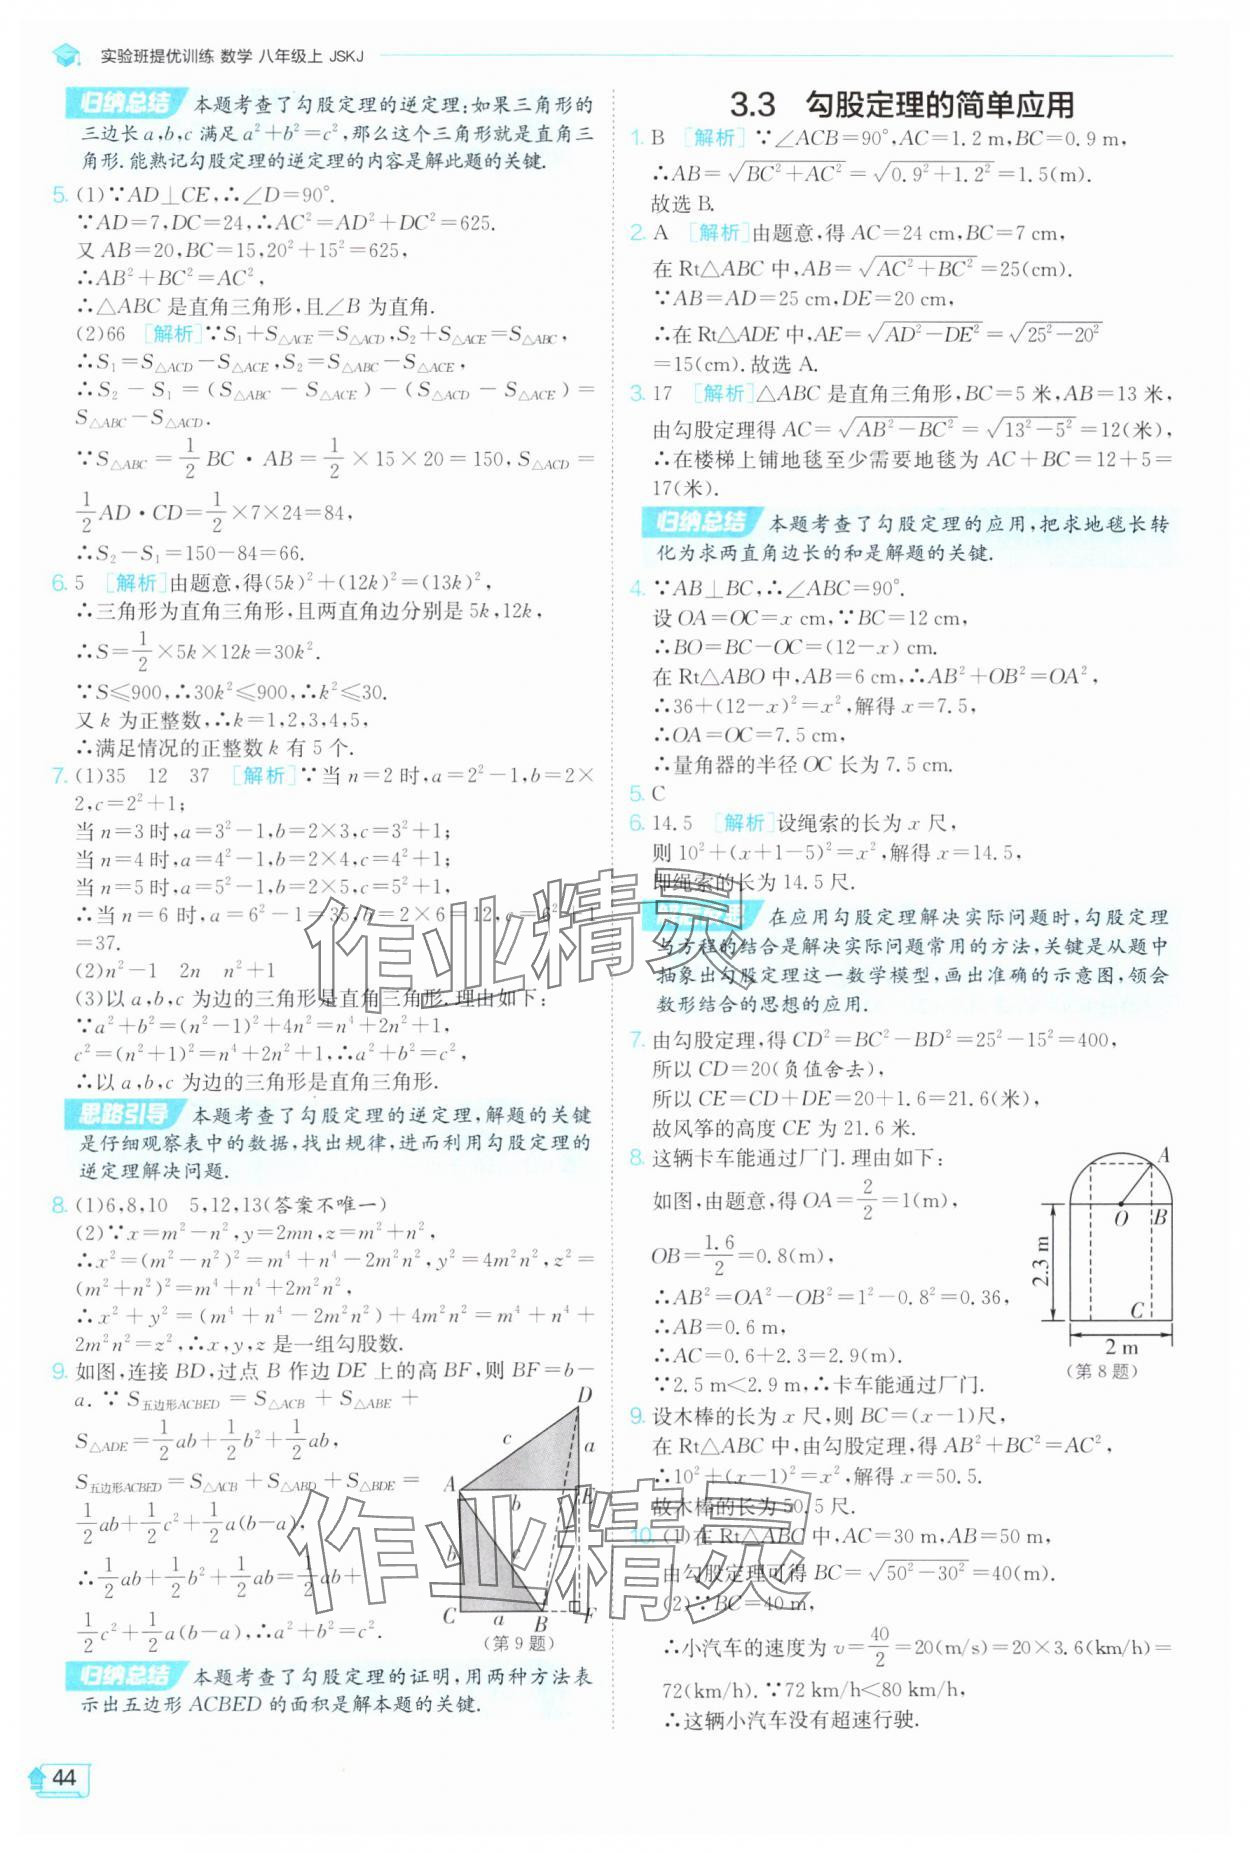 实验班提优训练 数学 八年级上 JSKJ
归纳总结 本题考查了勾股定理的逆定理:如果三角形的
三边长a,b,c满足a²+b²=c²,那么这个三角形就是直角三
角形.能熟记勾股定理的逆定理的内容是解此题的关键.
5. (1)∵AD⊥CE,∴∠D=90°.
∵AD=7,DC=24,∴AC²=AD²+DC²=625.
又AB=20,BC=15,20²+15²=625,
∴AB²+BC²=AC²,
∴△ABC是直角三角形,且∠B为直角.
(2)66 [解析]∵S₁+S△ACE=S△ACD,S₂+S△ACE=S△ABC,
∴S₁=S△ACD−S△ACE,S₂=S△ABC−S△ACE,
∴S₂−S₁=(S△ABC−S△ACE)−(S△ACD−S△ACE)=
S△ABC−S△ACD.
∵S△ABC=1/2 BC·AB=1/2×15×20=150,S△ACD=
1/2 AD·CD=1/2×7×24=84,
∴S₂−S₁=150−84=66.
6. 5 [解析]由题意,得(5k)²+(12k)²=(13k)²,
∴三角形为直角三角形,且两直角边分别是5k,12k,
∴S=1/2×5k×12k=30k².
∵S≤900,∴30k²≤900,∴k²≤30.
又k为正整数,∴k=1,2,3,4,5,
∴满足情况的正整数k有5个.
7. (1)35 12 37 [解析]∵当n=2时,a=2²−1,b=2×
2,c=2²+1;
当n=3时,a=3²−1,b=2×3,c=3²+1;
当n=4时,a=4²−1,b=2×4,c=4²+1;
当n=5时,a=5²−1,b=2×5,c=5²+1;
∴当n=6时,a=6²−1=35,b=2×6=12,c=6²+1
=37.
(2)n²−1 2n n²+1
(3)以a,b,c为边的三角形是直角三角形.理由如下:
∵a²+b²=(n²−1)²+4n²=n⁴+2n²+1,
c²=(n²+1)²=n⁴+2n²+1,∴a²+b²=c²,
∴以a,b,c为边的三角形是直角三角形.
思路引导 本题考查了勾股定理的逆定理,解题的关键
是仔细观察表中的数据,找出规律,进而利用勾股定理的
逆定理解决问题.
8. (1)6,8,10 5,12,13(答案不唯一)
(2)∵x=m²−n²,y=2mn,z=m²+n²,
∴x²=(m²−n²)²=m⁴+n⁴−2m²n²,y²=4m²n²,z²=
(m²+n²)²=m⁴+n⁴+2m²n²,
∴x²+y²=(m⁴+n⁴−2m²n²)+4m²n²=m⁴+n⁴+
2m²n²=z²,∴x,y,z是一组勾股数.
9. 如图,连接BD,过点B作边DE上的高BF,则BF=b−
a.∵S五边形ACBED=S△ACB+S△ABE+
S△ADE=1/2ab+1/2b²+1/2ab,
S五边形ACBED=S△ACB+S△ABD+S△BDE=
1/2ab+1/2c²+1/2a(b−a),
∴1/2ab+1/2b²+1/2ab=1/2ab+
1/2c²+1/2a(b−a),∴a²+b²=c².
D
c
a
A
b
E
b
c
C
a
B
F
(第9题)
归纳总结 本题考查了勾股定理的证明,用两种方法表
示出五边形ACBED的面积是解本题的关键.
44
3.3 勾股定理的简单应用
1. B [解析]∵∠ACB=90°,AC=1.2 m,BC=0.9 m,
∴AB=√(BC²+AC²)=√(0.9²+1.2²)=1.5(m).
故选B.
2. A [解析]由题意,得AC=24 cm,BC=7 cm,
在Rt△ABC中,AB=√(AC²+BC²)=25(cm).
∵AB=AD=25 cm,DE=20 cm,
∴在Rt△ADE中,AE=√(AD²−DE²)=√(25²−20²)
=15(cm).故选A.
3. 17 [解析]△ABC是直角三角形,BC=5米,AB=13米,
由勾股定理得AC=√(AB²−BC²)=√(13²−5²)=12(米),
∴在楼梯上铺地毯至少需要地毯为AC+BC=12+5=
17(米).
归纳总结 本题考查了勾股定理的应用,把求地毯长转
化为求两直角边长的和是解题的关键.
4. ∵AB⊥BC,∴∠ABC=90°.
设OA=OC=x cm,∵BC=12 cm,
∴BO=BC−OC=(12−x) cm.
在Rt△ABO中,AB=6 cm,∴AB²+OB²=OA²,
∴36+(12−x)²=x²,解得x=7.5,
∴OA=OC=7.5 cm,
∴量角器的半径OC长为7.5 cm.
5. C
6. 14.5 [解析]设绳索的长为x尺,
则10²+(x+1−5)²=x²,解得x=14.5,
即绳索的长为14.5尺.
在应用勾股定理解决实际问题时,勾股定理
与方程的结合是解决实际问题常用的方法,关键是从题中
抽象出勾股定理这一数学模型,画出准确的示意图,领会
数形结合的思想的应用.
7. 由勾股定理,得CD²=BC²−BD²=25²−15²=400,
所以CD=20(负值舍去),
所以CE=CD+DE=20+1.6=21.6(米),
故风筝的高度CE为21.6米.
8. 这辆卡车能通过厂门.理由如下:
如图,由题意,得OA=2/2=1(m),
OB=1.6/2=0.8(m),
∴AB²=OA²−OB²=1²−0.8²=0.36,
∴AB=0.6 m,
∴AC=0.6+2.3=2.9(m).
∵2.5 m<2.9 m,∴卡车能通过厂门.
A
O
B
2.3 m
C
2 m
(第8题)
9. 设木棒的长为x尺,则BC=(x−1)尺,
在Rt△ABC中,由勾股定理,得AB²+BC²=AC²,
∴10²+(x−1)²=x²,解得x=50.5.
故木棒的长为50.5尺.
10. (1)在Rt△ABC中,AC=30 m,AB=50 m,
由勾股定理可得BC=√(50²−30²)=40(m).
(2)∵BC=40 m,
∴小汽车的速度为v=40/2=20(m/s)=20×3.6(km/h)=
72(km/h).∵72 km/h<80 km/h,
∴这辆小汽车没有超速行驶.
作业精灵
作业精灵